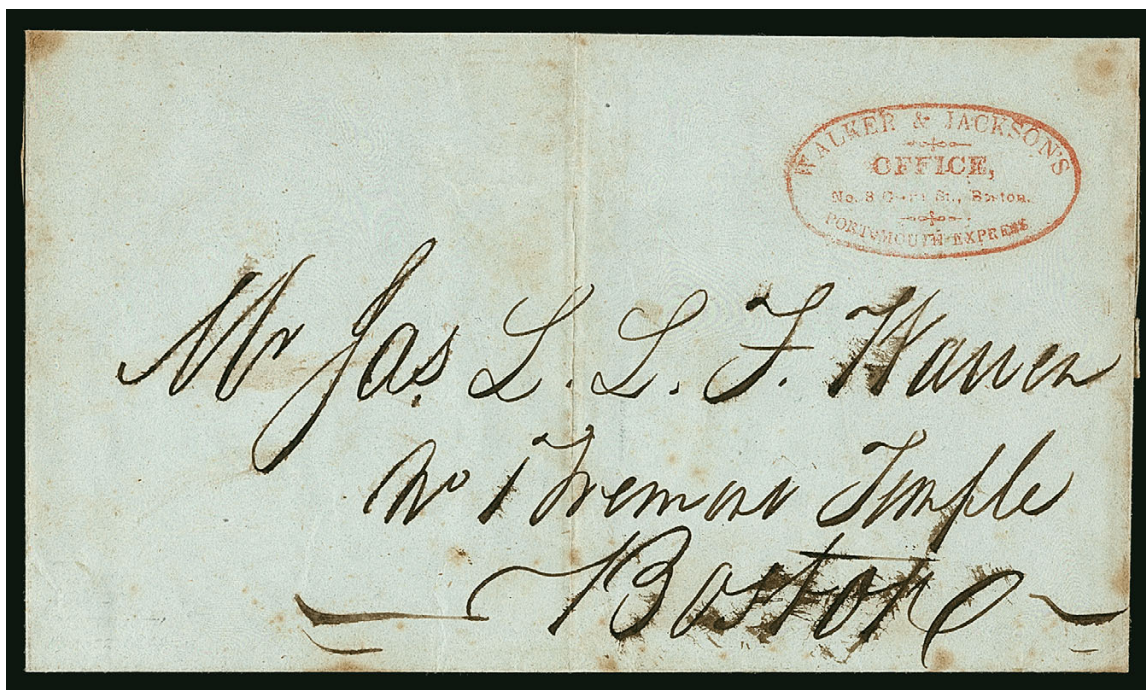 WALKER & JACKSON'S
OFFICE,
No. 8 Court St., Boston.
PORTSMOUTH EXPRESS
Mr Jas. L. L. F. Warren
No 1 Tremont Temple
Boston